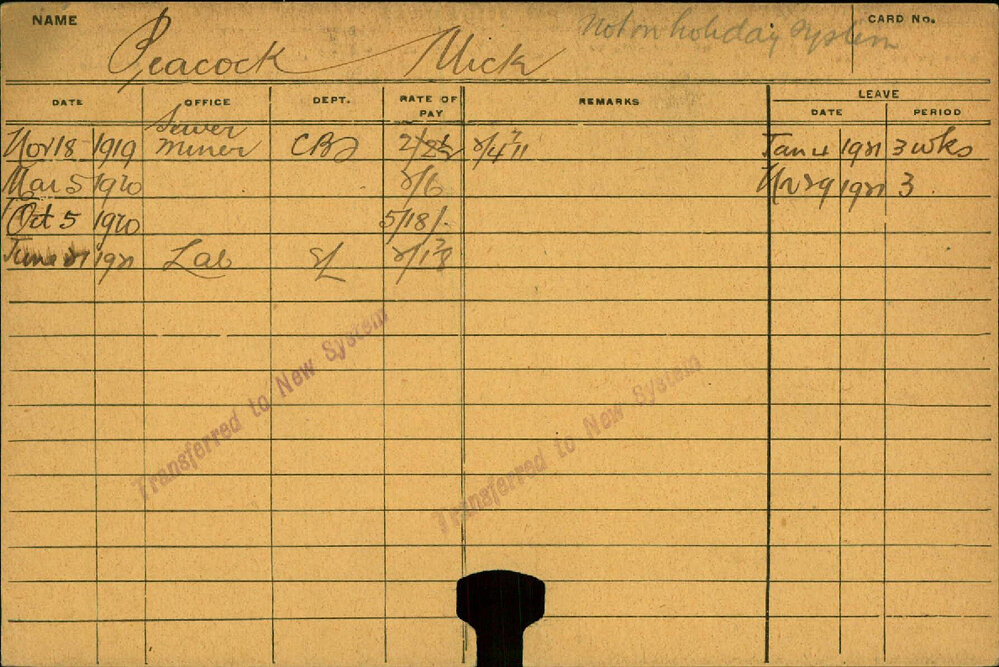 NAME Peacock Mick Not on holiday system CARD No.
DATE OFFICE DEPT. RATE OF PAY REMARKS LEAVE
DATE PERIOD
Nov 18 1919 Sewer miner 2/ Jan 4 1921 3 wks
Mar 5 1920 2/6 1921 3
Oct 5 1920 5/18/-
June 1921 Lab
Transferred to New System
Transferred to New System